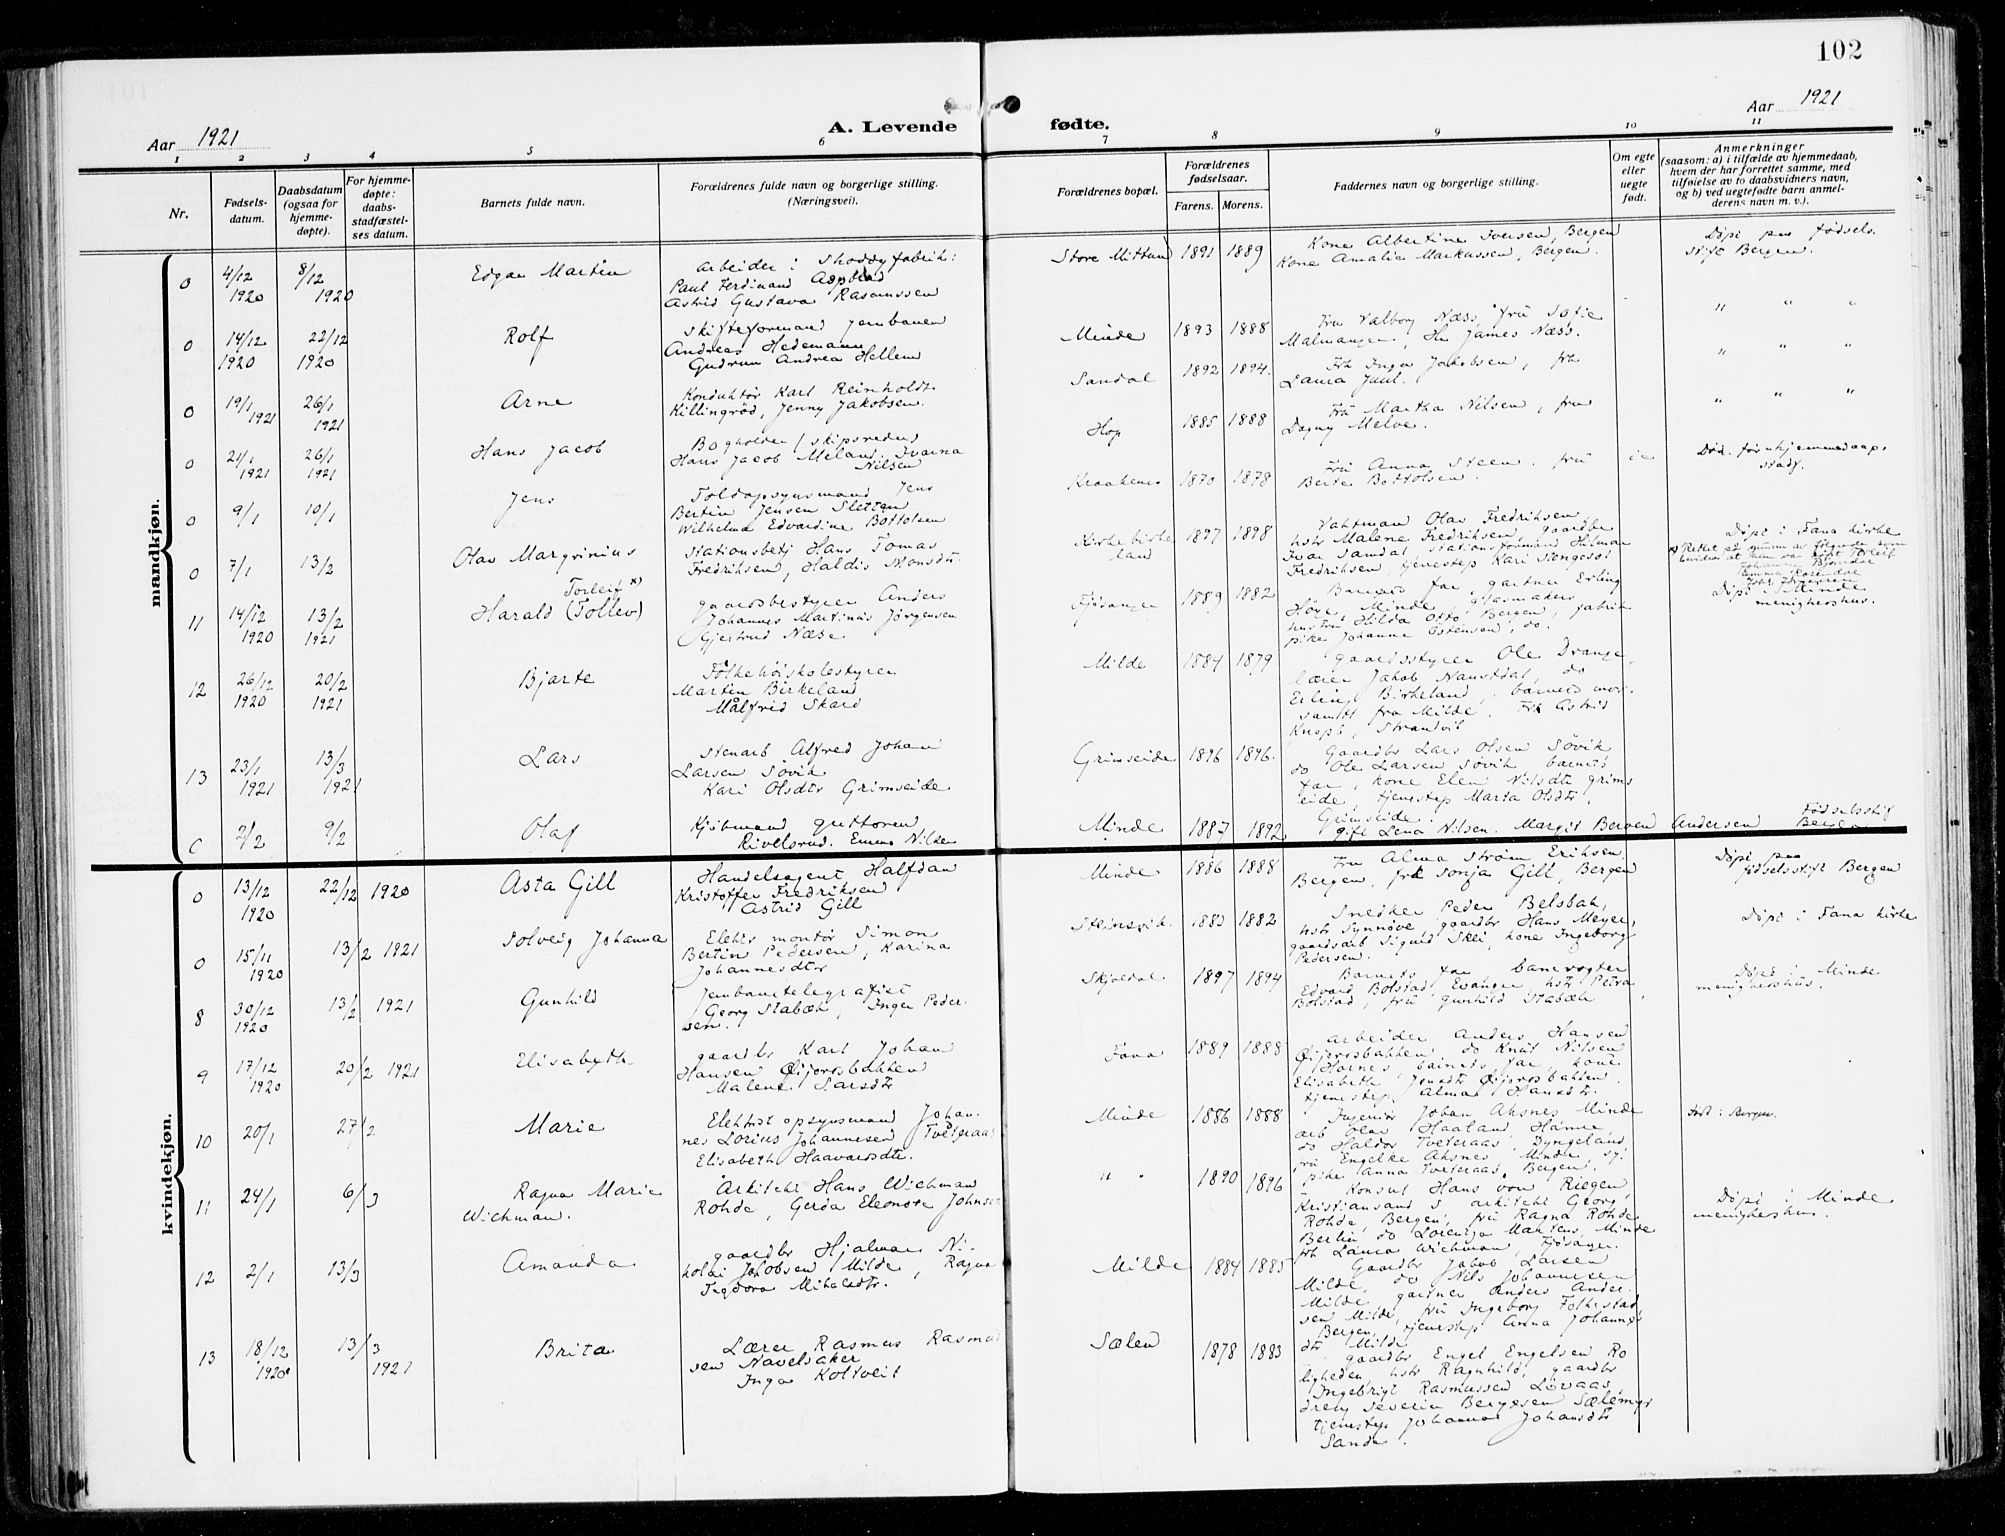 102
Aar 1921
A. Levende fødte.
Aar 1921
1 2 3 4 5 6 7 8 9 10 11
Nr.
Fødsels-
datum.
Daabsdatum
(ogsaa for
hjemme-
døpte).
For hjemme-
døpte:
daabs-
stadfæstel-
ses datum.
Barnets fulde navn.
Forældrenes fulde navn og borgerlige stilling.
(Næringsvei).
Forældrenes bopæl.
Forældrenes
fødselsaar.
Farens. Morens.
Faddernes navn og borgerlige stilling.
Om egte
eller
uegte
født.
Anmerkninger
(saasom: a) i tilfælde av hjemmedaab,
hvem der har forrettet samme, med
tilføielse av to daabsvidners navn,
og b) ved uegtefødte barn anmel-
derens navn m. v.).
mandkjøn.
0 4/12 1920 8/12 1920 Edgar Martin
Arbeider i Shoddyfabrik:
Paul Ferdinand
Astrid Gustava Rasmussen
Store Mittun 1891 1889
Kone Albertine Iversen, Bergen
Kone Amalie Markussen, Bergen.
Døpt paa fødsels.
stift Bergen.
0 14/12 1920 22/12 1920 Rolf
Skifteformand Jernbanen
Andreas Hedemann
Gudrun Andrea Hellem
Minde 1893 1888
Fru Valborg Næss, frü Sofie
Malmanger, Hr James Næss.
" " "
0 19/1 1921 26/1 1921 Arne
Konduktør Karl Reinholdt
Killingrød, Jenny Jakobsen.
Sandal 1892 1894.
Frk Inga Jakobsen, frk
Laura Juul.
" " "
0 21/1 1921 26/1 1921 Hans Jacob
Bogholder (skipsreder)
Hans Jacob Meland. Ivarna
Nilsen
Hop 1885 1888
Frü Martha Nilsen, fru
Dagny Melve.
" " "
0 9/1 10/1 Jens
Toldopsynsmand Jens
Bertin Jensen Sletten
Wilhelma Edvardine Bottolsen
Kraakenes 1870 1878
Frü Anna Steen. frü
Berta Bottolsen.
Død. før hjemmedaaps
stadf.
0 7/1 13/2 Olav Margrinius
Stationsbetj Hans Tomas
Fredriksen, Haldis Monsdtr.
Kirkebirke
land 1897 1898
Vaktman Olav Fredriksen,
hstr Malene Fredriksen, gaardbr
Ivar Samdal, stationsformand Hilmar
Fredriksen, tjenestep Kari Stengesøl
Døpt i Fana kirke
11 14/12 1920 13/2 1921 Torleif x)
Harald (Tollev)
gaardsbestyrer Anders
Johannes Martinus Jørgensen
Gjertrud Næse
Fjøsanger 1889 1882
Barnets far, gartner Erling
Høye, Minde, glasmakers
hustru Hilda Otto, Bergen, fabrik
pike Johanne Østensen, do.
Døpt i Minde
menighetshus.
12 26/12 1920 20/2 1921 Bjarte
Folkehøiskolestyrer
Martin Birkeland
Målfrid Skard
Milde 1884 1879
gaardsstyrer Ole Drange,
lærer Jakob Naustdal, do
Erling Birkeland, barnets mor.
samtl fra Milde. Frk Astrid
Knoph, Strandvik
13 23/1 1921 13/3 1921 Lars
Stenarb Alfred Johan
Larsen Søvik
Kari Olsdtr Grimseide
Grimseide 1896 1896.
Gaardbr Lars Olsen Søvik
do Ole Larsen Søvik barnets
far, kone Elen Nilsdtr Grims
eide, tjenestep Marta Olsdtr,
Grimseide.
0 2/2 9/2 Olaf
Kjøbmand Guttorm
Rivelsrud. Emma Nilde
Minde 1887 1892
gift Lena Nilsen. Margit Berven Andersen
Fødselsstif
Bergen
kvindekjøn.
0 13/12 1920 22/12 1920 Asta Gill
Handelsagent Halfdan
Kristoffer Fredriksen
Astrid Gill
Minde 1886 1888
Fru Alma Strøm Eriksen
Bergen, frk Sonja Gill, Bergen
Døpt paa
fødselsstift Bergen
0 15/11 1920 13/2 1921 Solveig Johanna
Elektr montør Simon
Bertin Pedersen, Karina
Johannesdtr
Steinsvik. 1883 1882
Snedker Peder Belsbak,
hstr Synnøve, gaardbr Hans Meyer,
gaardsarb Sigurd Skei, kone Ingeborg
Pedersen.
Døpt i Fana kirke
8 30/12 1920 13/2 1921 Gunhild
Jernbanetelegrafist
Georg Stabæk, Inger Peder
sen.
Skjoldal 1897 1894
Barnets far, banevogter
Edvard Bolstad, Evanger, hstr Petra
Bolstad, frü Gunhild Stabæk
Døpt i Minde
menighetshus.
9 17/12 1920 20/2 1921 Elisabeth
gaardbr Karl Johan
Hansen Øijordsbakken
Malene Larsdtr
Fana 1889 1888
Arbeider Anders Hansen
Øijordsbakken, do Knut Nilsen
Hornes, barnets far, kone
Elisabeth Jonsdtr Øijordsbakken.
tjenestep. Alma Hansdtr.
10 20/1 27/2 Marie
Elektrist opsynsmand Johan.
nes Lorius Johannesen Tveteraas
Elisabeth Haavardsdtr.
Minde 1886 1888
Ingeniør Johan Aksnes Minde
arb Olav Haaland, Hamre
do Haldor Tveteraas, Dyngeland,
frü Engelke Aksnes Minde, sy.
pike Anna Tveteraas, Bergen.
født i Bergen.
11 24/1 6/3 Ragna Marie
Wichman.
Arkitekt Hans Wichman
Rohde, Gerda Eleonore Johnsen
" " 1890 1896
Konsul Hans von Riegen
Kristiansand S arkitekt Georg
Rohde, Bergen, frü Ragna Rohde
Berlin, do Lorentza Martens, Minde
frk Laura Wichman, Fjøsanger.
Døpt i Minde
menighetshus.
12 2/1 13/3 Amanda
gaardbr Hjalmar Ni-
kolai Jakobsen Milde, Ragna
Teodora Mikaldtr.
Milde 1884 1885
Gaardbr Jakob Larsen
Milde, do Nils Johannesen
Milde, gartner Anders Ander.
sen Milde, frü Ingeborg Folkestad,
Bergen, tjenestep Anna Johannes
dtr Milde
13 18/12 1920 13/3 1921 Brita
Lærer Rasmus Rasmus
sen Navelsaker
Inga Koltveit
Sælen 1878 1883
gaardbr Engel Engelsen Ro
ligheden, hstr Ragnhild, gaardbr
Ingebrigt Rasmussen Løvaas,
dreng Severin Bergesen Sælemyr
tjenestep Johanna Johansdtr
Sande.